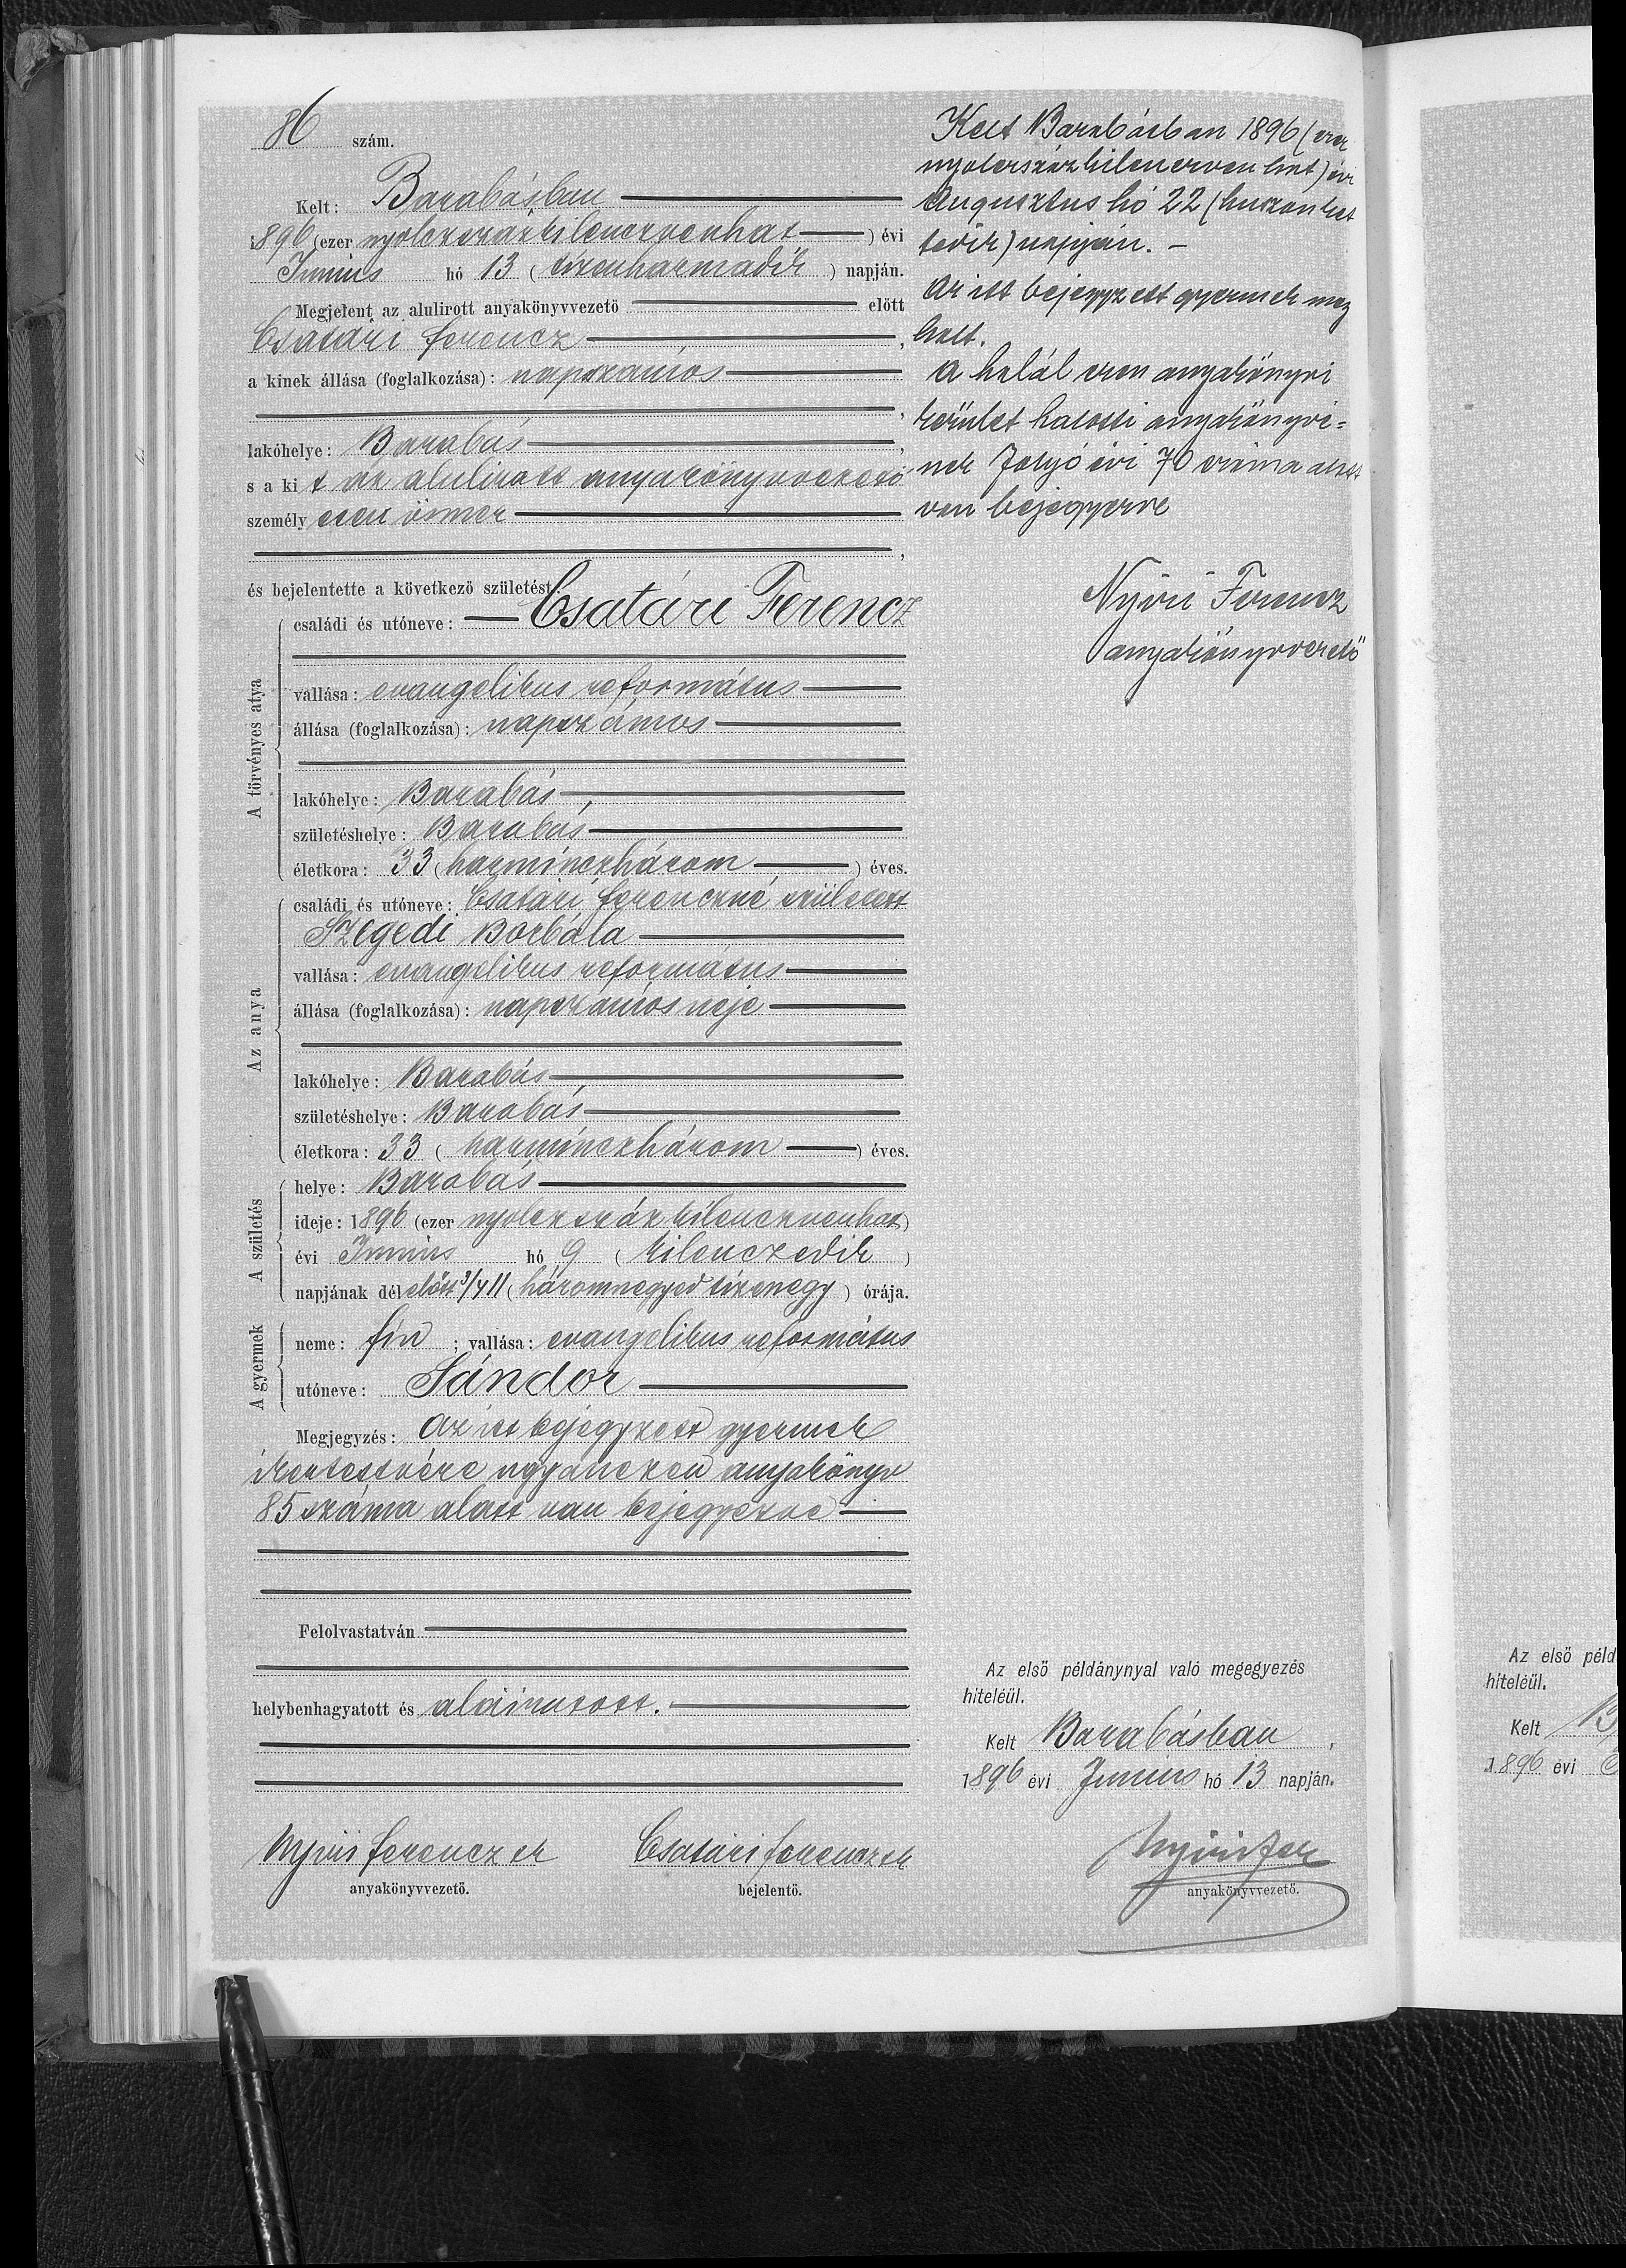 86 szám.
Kelt: Barabásban
1896 (ezer nyolczszázkilenczvenhat) évi
Junius hó 13 (tizenharmadik) napján.
Megjelent az alulirott anyakönyvvezető előtt
Csatári Ferencz,
a kinek állása (foglalkozása): napszámos
lakóhelye: Barabás,
s a kit az alulirott anyakönyvvezető
személyesen ösmer,
és bejelentette a következő születést:
A törvényes atya
családi és utóneve: Csatári Ferencz
vallása: evangelikus református
állása (foglalkozása): napszámos
lakóhelye: Barabás
születéshelye: Barabás
életkora: 33 (harminczhárom) éves.
Az anya
családi és utóneve: Csatári Ferenczné született
Szegedi Borbála
vallása: evangelikus református
állása (foglalkozása): napszámos neje
lakóhelye: Barabás
születéshelye: Barabás
életkora: 33 (harminczhárom) éves.
A születés
helye: Barabás
ideje: 1896 (ezer nyolczszázkilenczvenhat)
évi Junius hó 9 (kilenczedik)
napjának délelőtt 3/4 11 (háromnegyed tizenegy) órája.
A gyermek
neme: fiu; vallása: evangelikus református
utóneve: Sándor
Megjegyzés: Az itt bejegyzett gyermek
ikertestvére ugyanezen anyakönyv
85 száma alatt van bejegyezve
Felolvastatván
helybenhagyatott és aláiratott.
Nyiri Ferencz sk
anyakönyvvezető.
Csatári Ferencz sk
bejelentő.
Kelt Barabásban 1896 (ezer
nyolczszázkilenczvenhat) évi
Augusztus hó 22 (huszonket
tedik) napján. –
Az itt bejegyzett gyermek meg
halt.
A halál ezen anyakönyvi
kerület halotti anyakönyvé=
nek folyó évi 70 száma alatt
van bejegyezve
Nyiri Ferencz
anyakönyvvezető
Az első példánynyal való megegyezés
hiteléül.
Kelt Barabásban,
1896 évi Junius hó 13 napján.
Nyiri Fer
anyakönyvvezető.
Az első péld
hiteléül.
Kelt B
1896 évi J